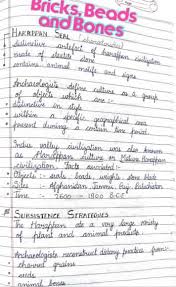 Bricks, Beads
and Bones
HARAPPAN SEAL (characteristics)
distinctive artefact of harappan civilization
made of steatite stone
contains animal motifs and signs
Archaeologists define culture as a group
of objects which are :-
distinctive in style
within a specific geographical area
present during a certain time period
Indus valley civilization was also known
as Harappan culture or Mature Harappan
civilization facts
Objects : seals beads, weights stone blades
Sites :- Afghanistan Jammu, Balochistan
Time :- 2600 - 1900 BCE
SUBSISTENCE STRATEGIES
The Harappan ate a very large variety
of plant and animal products
Archaeologists reconstruct dietary practices from:-
charred grains
seeds
animal bones